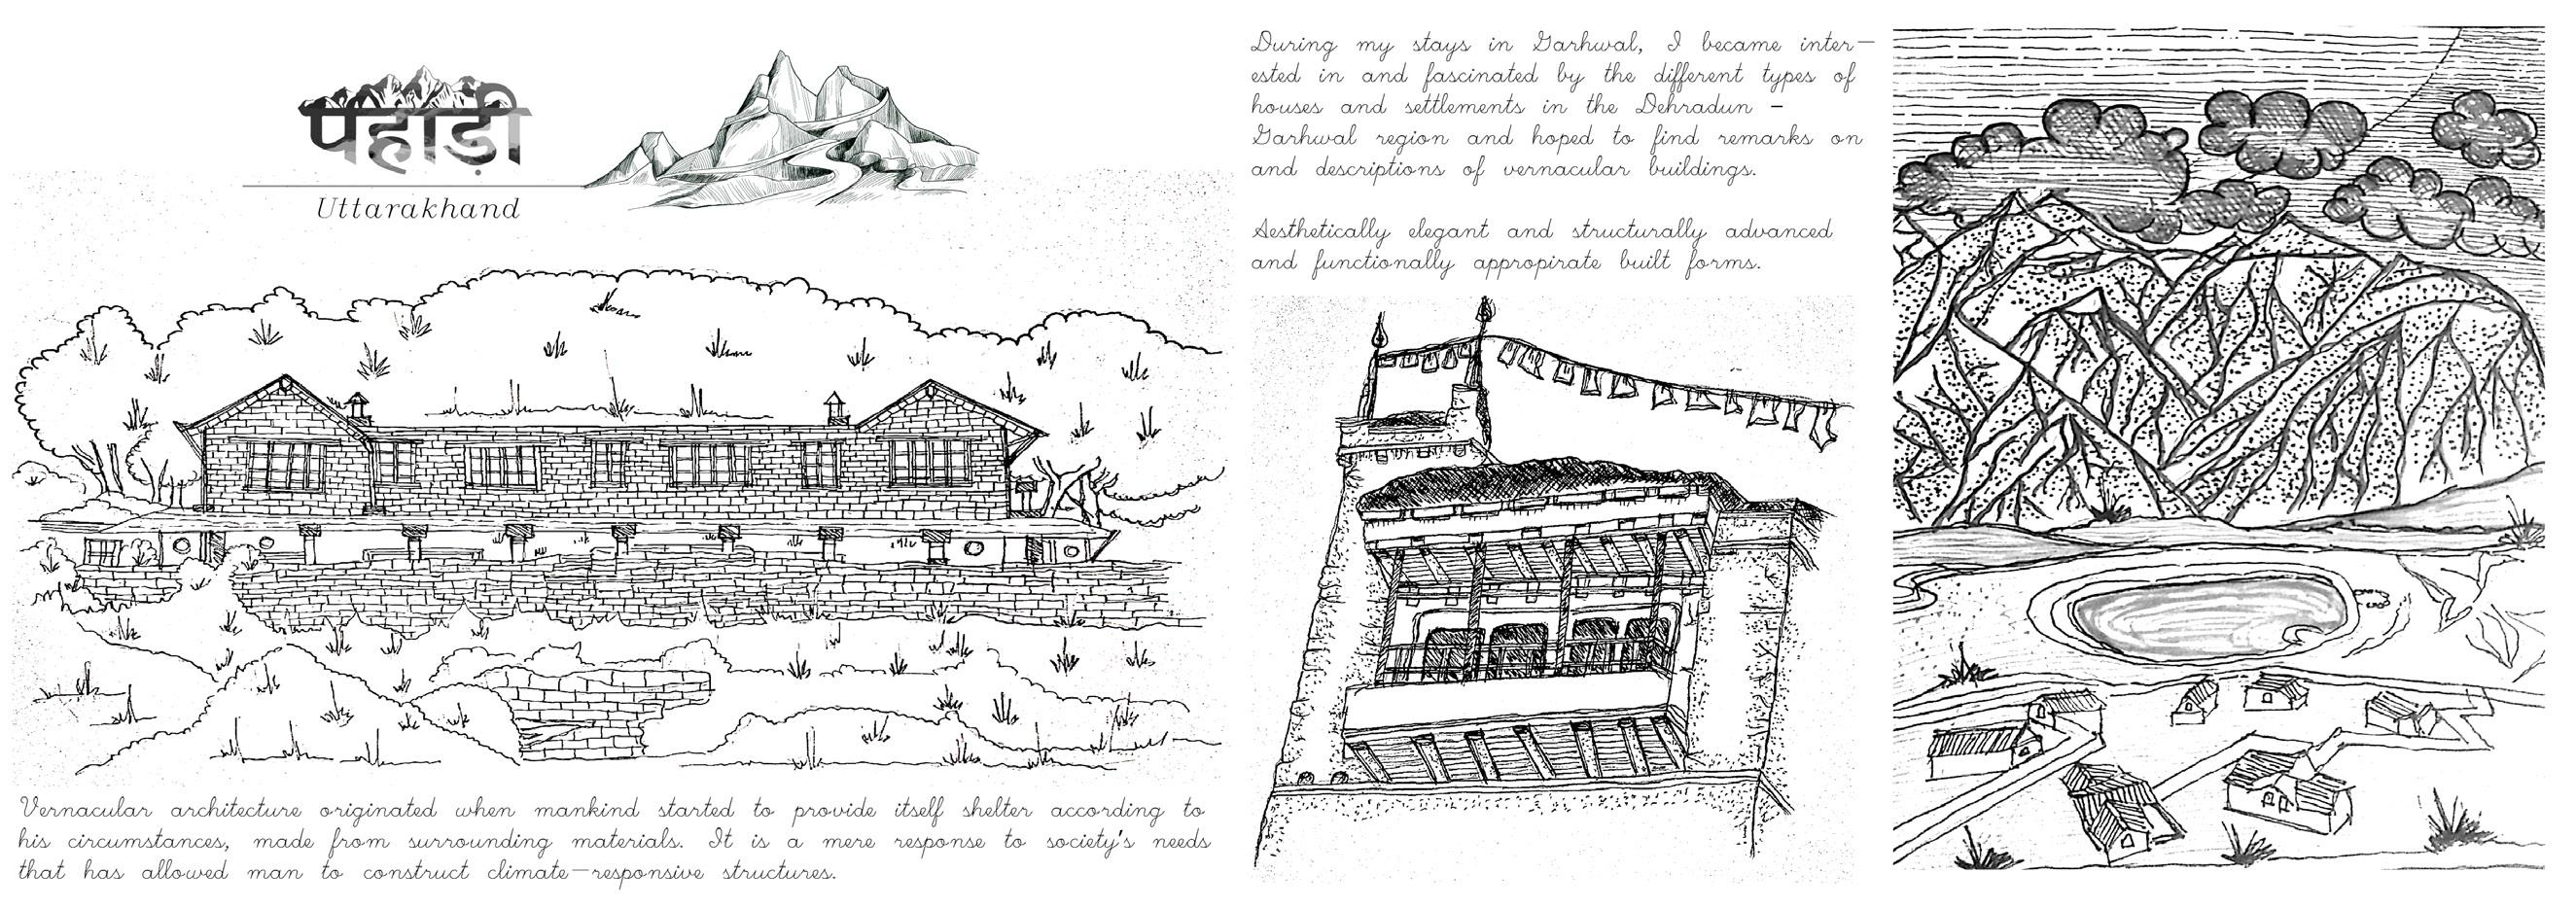 पहाड़ी
Uttarakhand
Vernacular architecture originated when mankind started to provide itself shelter according to
his circumstances, made from surrounding materials. It is a mere response to society's needs
that has allowed man to construct climate-responsive structures.
During my stays in Garhwal, I became inter-
ested in and fascinated by the different types of
houses and settlements in the Dehradun -
Garhwal region and hoped to find remarks on
and descriptions of vernacular buildings.
Aesthetically elegant and structurally advanced
and functionally appropirate built forms.